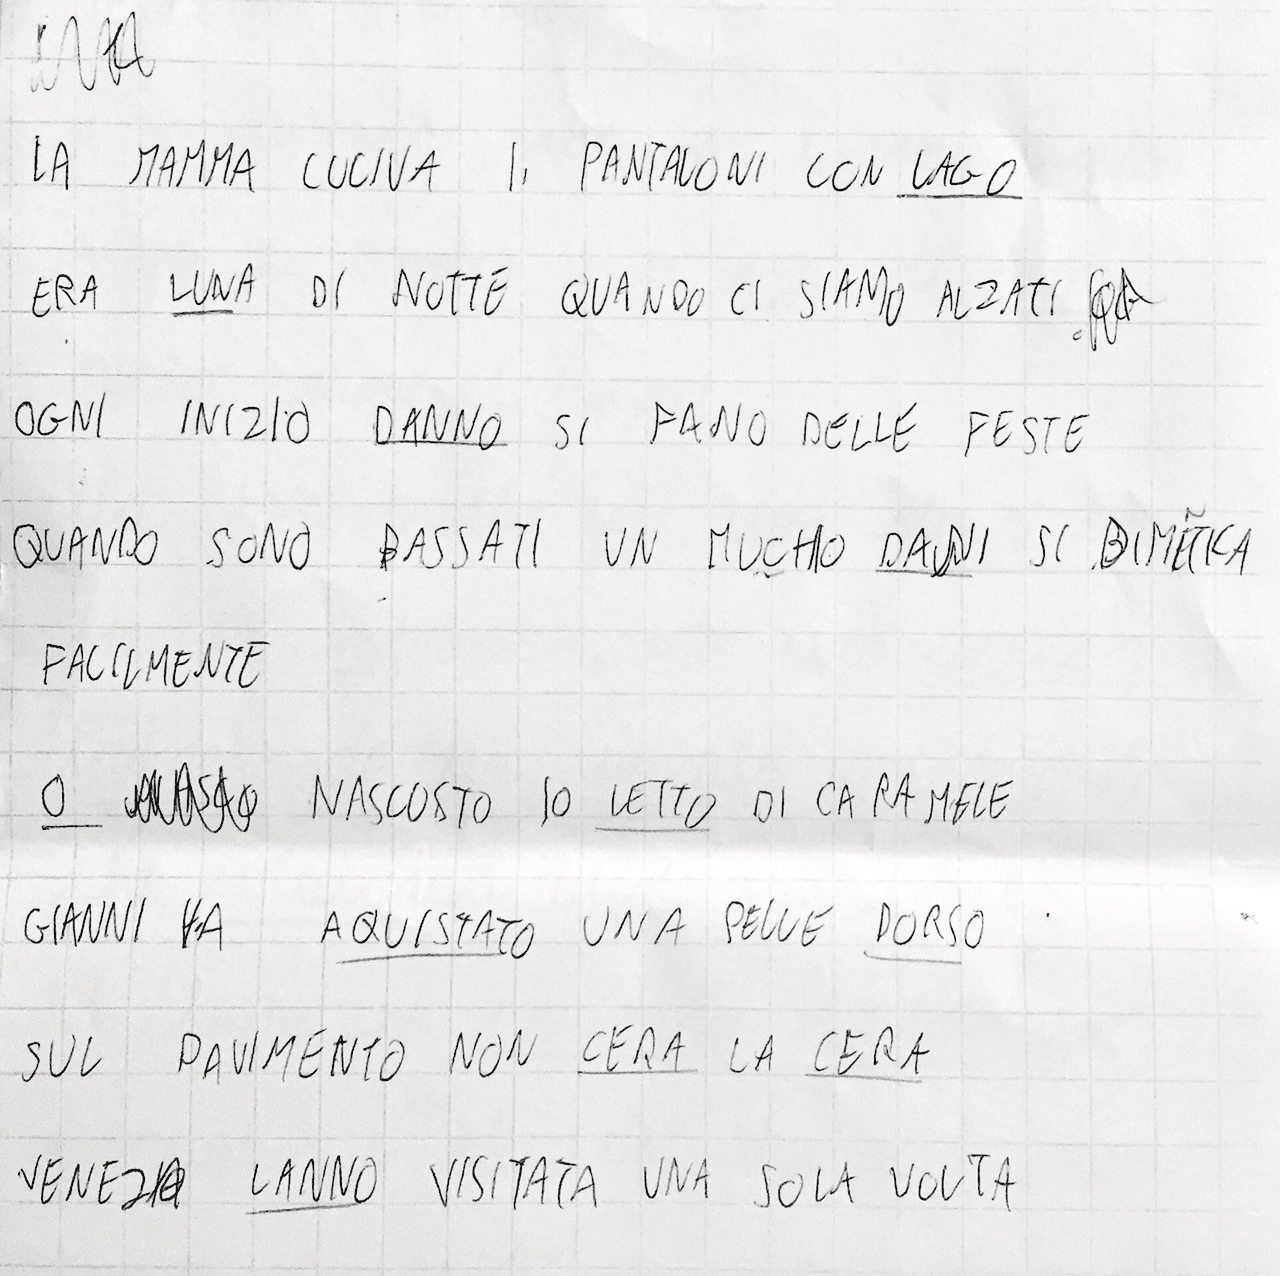 LA MAMMA CUCIVA I PANTALONI CON LAGO
ERA LUNA DI NOTTE QUANDO CI SIAMO ALZATI
OGNI INIZIO DANNO SI FANO DELLE FESTE
QUANDO SONO PASSATI UN MUCHIO DANNI SI DIMETICA
FACILMENTE
O NASCOSTO IO LETTO DI CARAMELE
GIANNI HA AQUISTATO UNA PELLE DORSO
SUL PAVIMENTO NON CERA LA CERA
VENEZIA LANNO VISITATA UNA SOLA VOLTA